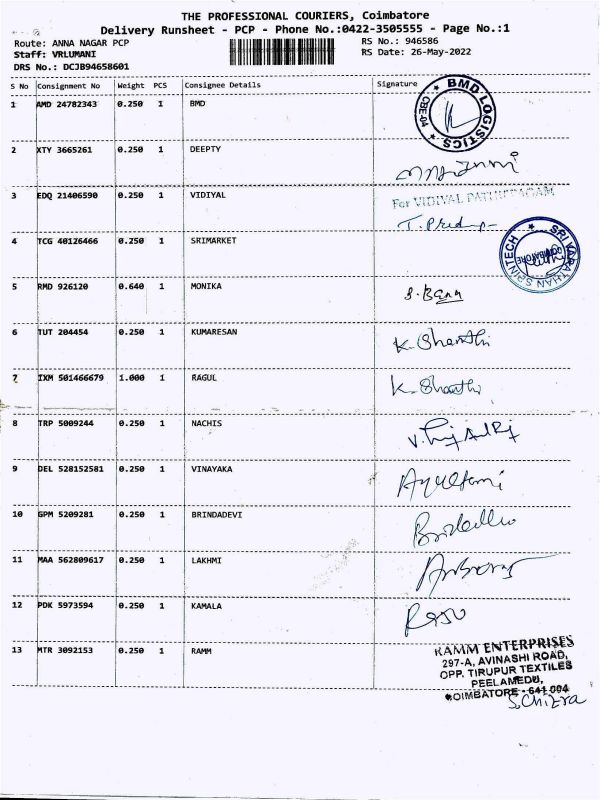 THE PROFESSIONAL COURIERS, Coimbatore
Delivery Runsheet - PCP - Phone No.:0422-3505555 - Page No.:1
Route: ANNA NAGAR PCP RS No.: 946586
Staff: VRLUMANI RS Date: 26-May-2022
DRS No.: DCJB94658601
S No Consignment No Weight PCS Consignee Details Signature
1 AMD 24782343 0.250 1 BMD
BMD LOGISTICS CBE-04
2 XTY 3665261 0.250 1 DEEPTY
3 EDQ 21406590 0.250 1 VIDIYAL For VIDIYAL
T. Pradup
4 TCG 40126466 0.250 1 SRIMARKET
SRI VARATHAN SRINTECH COIMBATORE
5 RMD 926120 0.640 1 MONIKA S. Banu
6 TUT 204454 0.250 1 KUMARESAN K. Shanthi
7 IXM 501466679 1.000 1 RAGUL K. Shanthi
8 TRP 5009244 0.250 1 NACHIS
9 DEL 528152581 0.250 1 VINAYAKA
10 GPM 5209281 0.250 1 BRINDADEVI
11 MAA 562809617 0.250 1 LAKHMI
12 PDK 5973594 0.250 1 KAMALA
13 MTR 3092153 0.250 1 RAMM
RAMM ENTERPRISES
297-A, AVINASHI ROAD,
OPP. TIRUPUR TEXTILES
PEELAMEDU,
COIMBATORE - 641 004
S. Chitra